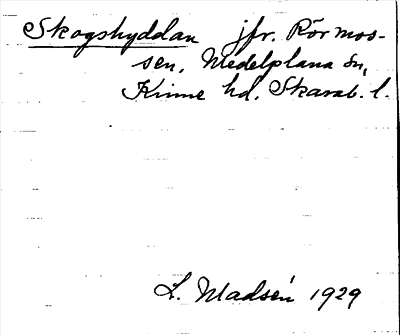 Skogshyddan jfr. Rörmos-
sen, Medelplana sn,
Kinne hd. Skarab. l.
L. Madsén 1929